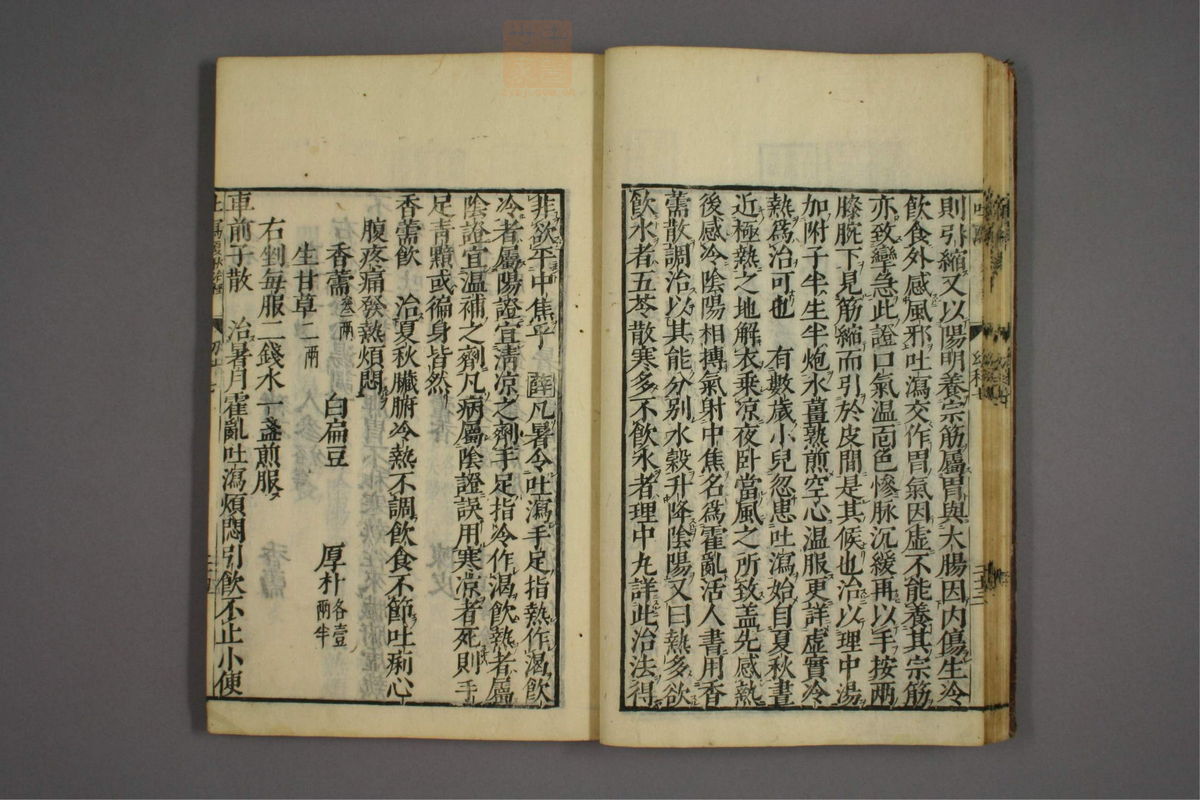 則引縮又以陽明養宗筋屬胃與大腸因内傷生冷
飲食外感風邪吐瀉交作胃氣因虛不能養其宗筋
亦致攣急此證口氣温面色慘脉沉緩再以手按兩
膝腕下見筋縮而引於皮間是其候也治以理中湯
加附子半生半炮水薑熟煎空心温服更詳虛實冷
熱爲治可也　有數歲小兒忽患吐瀉始自夏秋晝
近極熱之地解衣乘凉夜卧當風之所致盖先感熱
後感冷陰陽相搏氣射中焦名爲霍亂活人書用香
薷散調治以其能分别水穀升降陰陽又曰熱多欲
飲水者五苓散寒多不飲水者理中丸詳此治法得
非欲平中焦乎　薛凡暑令吐瀉手足指熱作渴飲
冷者屬陽證宜清凉之劑手足指冷作渴飲熱者屬
陰證宜温補之劑凡病屬陰證誤用寒凉者死則手
足青黯或徧身皆然
香薷飲　治夏秋臟腑冷熱不調飲食不節吐痢心
腹疼痛發熱煩悶
香薷叁兩　白扁豆　厚朴各壹兩半
生甘草二兩
右剉每服二錢水一盞煎服
車前子散　治暑月霍亂吐瀉煩悶引飲不止小便